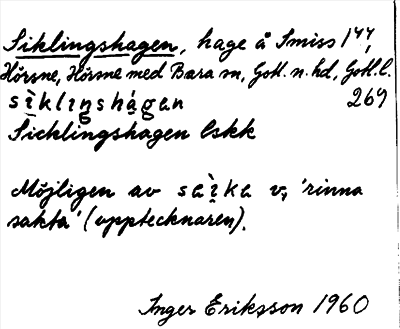 Siklingshagen, hage å Smiss 1⁴⁴,
Hörsne, Hörsne med Bara sn, Gotl. n. hd, Gotl. l.
sìklıŋshágan 269
Sicklingshagen lskk
Möjligen av saìka v., 'rinna
sakta' (upptecknaren).
Inger Eriksson 1960